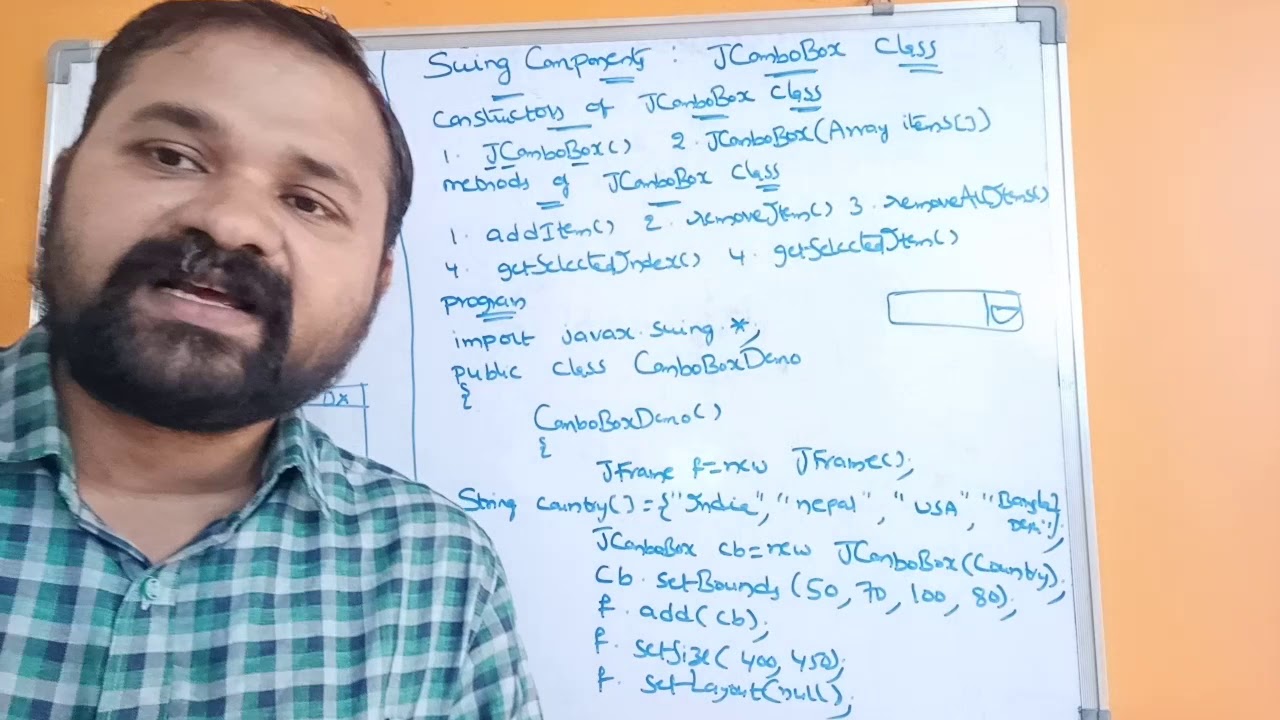 Swing Components : JComboBox Class
Constructors of JComboBox Class
1. JComboBox() 2. JComboBox(Array items[])
methods of JComboBox Class
1. addItem() 2. removeItem() 3. removeAllItems()
4. getSelectedIndex() 4. getSelectedItem()
program
import javax.swing.*;
public class ComboBoxDemo
{
ComboBoxDemo()
{
JFrame f=new JFrame();
String country[]={"India", "nepal", "USA", "Bangla
Desh"};
JComboBox cb=new JComboBox(Country);
cb.setBounds(50,70,100,80);
f.add(cb);
f.setSize(400,450);
f.setLayout(null);
DX